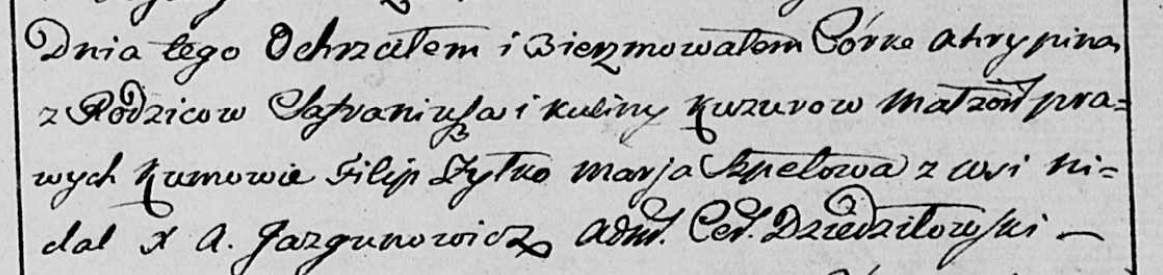 Dnia tego Ochrzciłem i Bierzmowałem Córkę Ahrypinę
z Rodzicow i Kuliny Kuzurow Małżon pra=
wych Kumowie Filip Żyłko Marja Szpetowa z wsi Ni=
dal X A. Jazgunowicz Adm. Cer. Dziedziłowski —